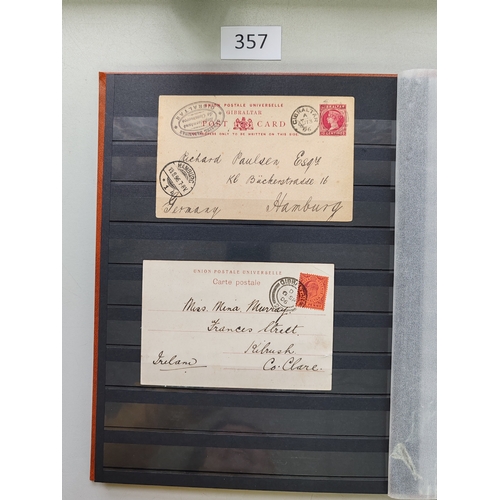 357
UNION POSTALE UNIVERSELLE
GIBRALTAR
POST CARD
TO BE WRITTEN ON THIS SIDE
GIBRALTAR
Richard Paulsen Esqre
Kl Bäckerstrasse 16
Germany Hamburg
HAMBURG
UNION POSTALE UNIVERSELLE
Carte postale
Miss. Mina Murray.
Frances Street
Kilrush
Ireland
Co. Clare.